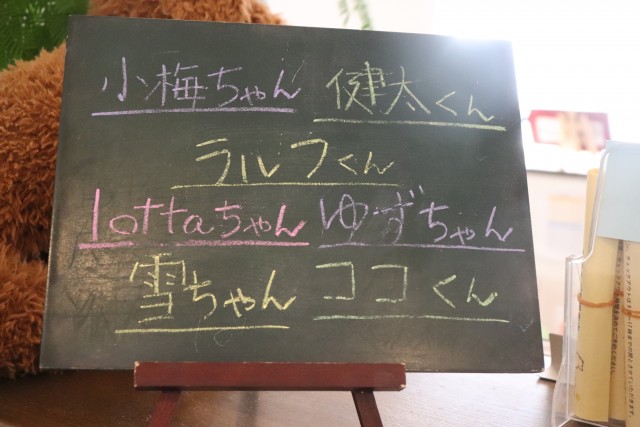 小梅ちゃん 健太くん
ラルフくん
Lottaちゃん ゆずちゃん
雪ちゃん ココくん